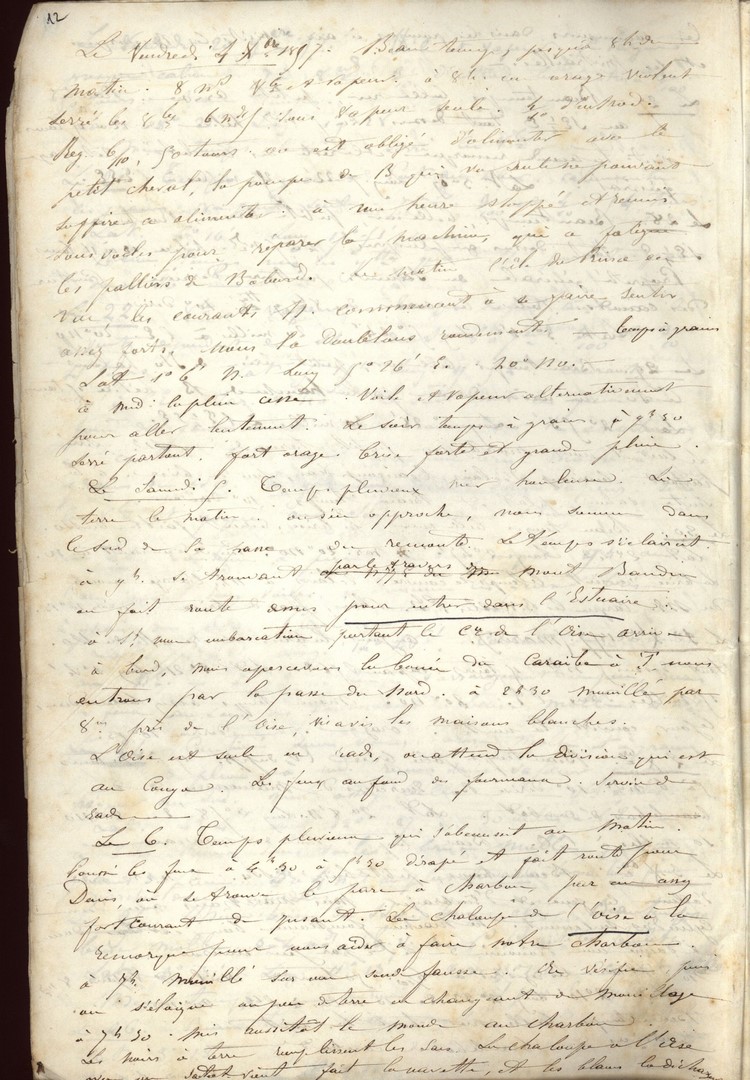 12
Le Vendredi 4 Xbre 1857. Beau temps jusqu'à 8h du
matin. 8 nds et vapeur. à 8h. un orage violent
serré les 6 nds sous vapeur seule. d'introd.
Reg. 6/10, 50 tours. on est obligé d'alimenter avec le
petit cheval, la pompe de B qui va seule ne pouvant
suffire à alimenter. à une heure stoppé et remis
sous voiles pour réparer la machine, qui a fatigué
les palliers de Babord. Le matin l'île du Prince en
vue les courants commencent à se faire sentir
assez forts. nous la doublons rondement. Temps à grains
Lat 1° N. Long 5° 26' E. 20° No.
à midi la pluie cesse. Voile et vapeur alternativement
pour aller lentement. Le soir temps à grains à 9h 30
serré partout. fort orage brise forte et grande pluie.
Le Samedi 5. Temps pluvieux mer houleuse. La
terre le matin. on s'en approche, nous sommes dans
le sud de la passe on remonte. Le temps s'éclaircit.
à 9h. se trouvant par le travers du mont Baudin
on fait route dessus pour entrer dans l'Estuaire.
à une embarcation portant le Ct de l'Oise arrive
à bord, nous apercevons la bouée du Caraïbe à nous
entrons par la passe du Nord. à 2h 30 mouillé par
8m près de l'Oise, vis à vis les maisons blanches.
L'Oise est seule en rade, on attend la division qui est
au Congo. Les feux au fond des fourneaux. Service de
rade
Le 6. Temps pluvieux qui s'adoucit au matin.
Poussé les feux à 4h 30 à 5h 30 dérapé et fait route pour
Denis, où se trouve le parc à charbon, par un assez
fort courant de jusant. La chaloupe de l'Oise à la
remorque pour nous aider à faire notre charbon.
à 7h mouillé sur un fond fausse. On vérifie puis
on s'éloigne un peu de terre en changeant de mouillage
à 7h 30. mis aussitôt le monde au charbon
Les noirs à terre remplissent les sacs. La chaloupe à l'Oise
vient fait la navette, et les blancs la déchargent